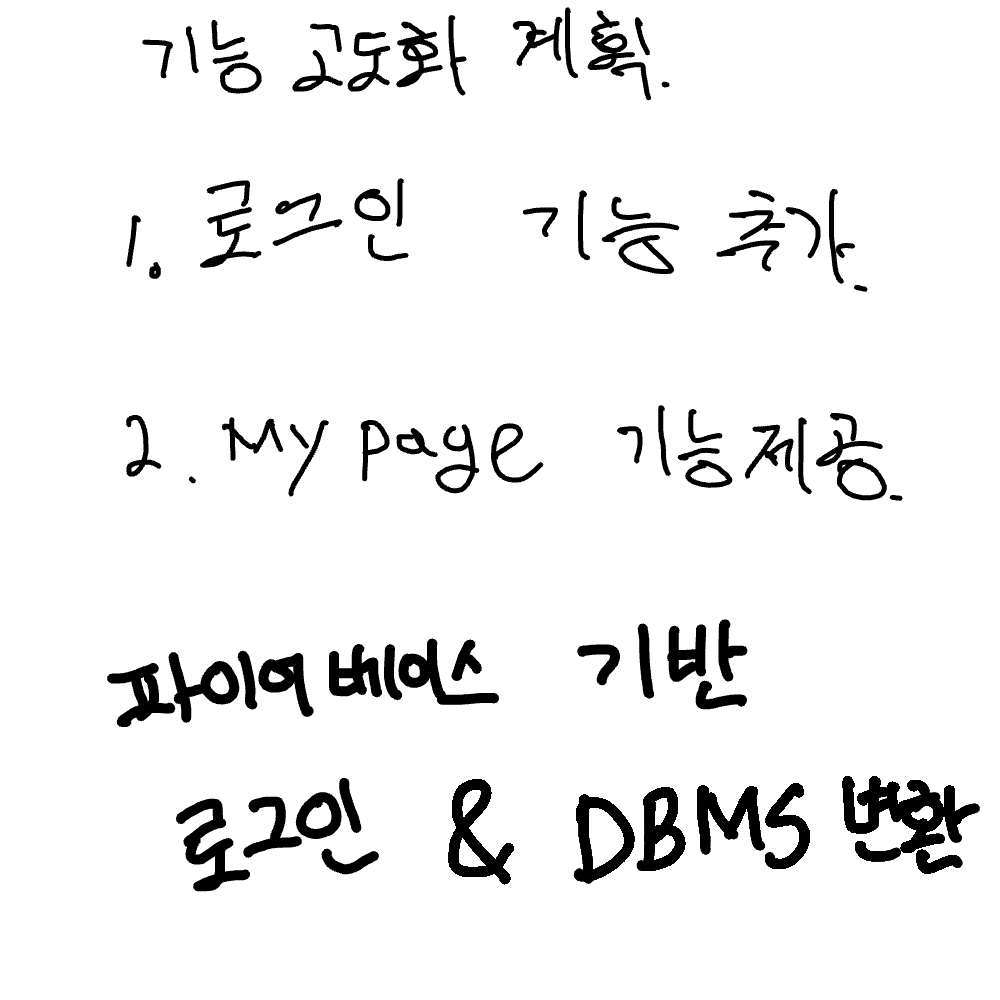 기능 고도화 계획.
1. 로그인 기능 추가.
2. My page 기능제공.
파이어베이스 기반
로그인 & DBMS 변환